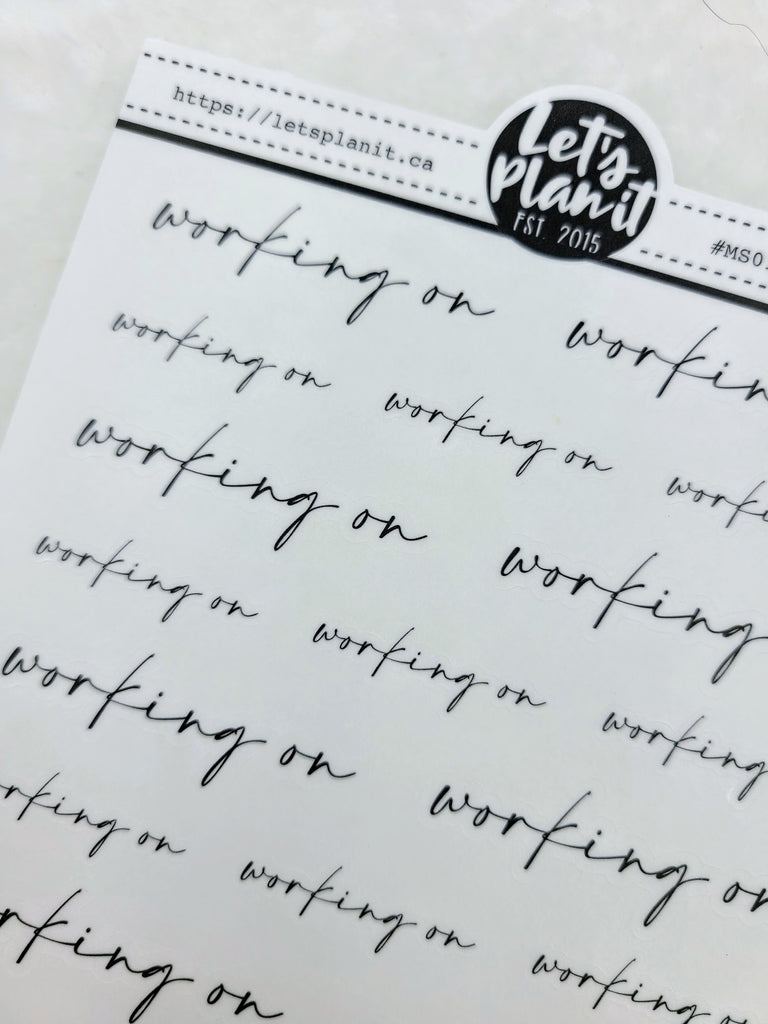 https://letsplanit.ca
Let's
Planit
EST 2015
#MS0
working on workin
working on working on worki
working on working
working on working on working
working on working on
rking on working on working on
rking on